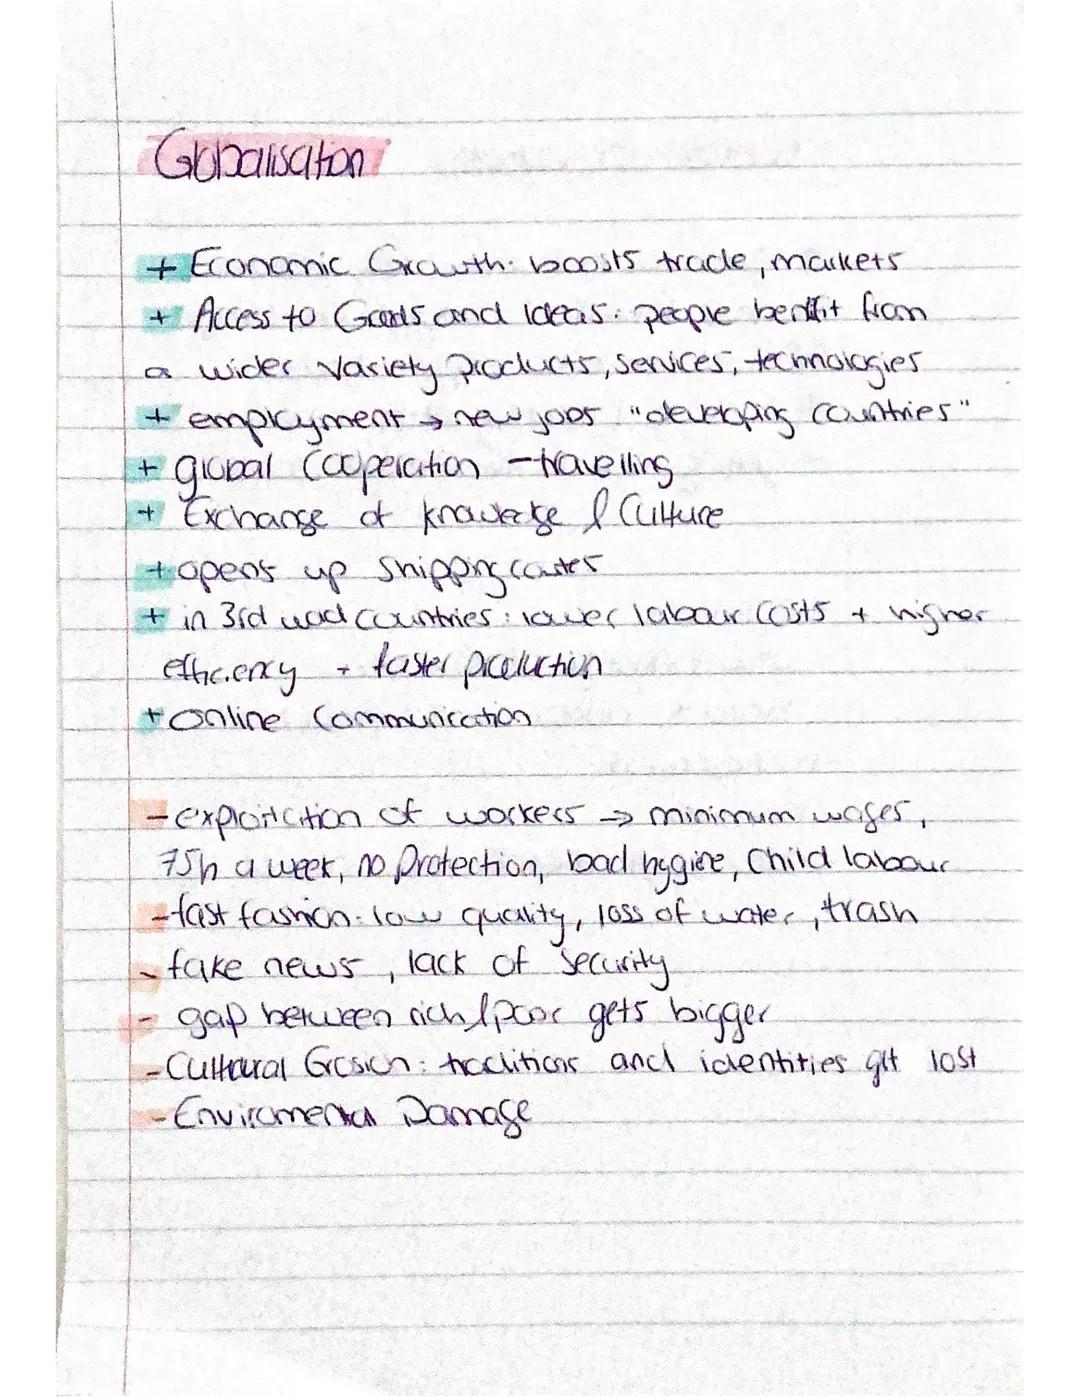 Globalisation
+ Economic Growth: boosts trade, markets
+ Access to Goods and Ideas: people benefit from
a wider variety products, services, technologies
+ employment → new jobs "developing countries"
+ global cooperation - travelling
+ Exchange of knowledge & Culture
+ opens up shipping routes
+ in 3rd world countries: lower labour costs + higher
efficiency + faster production
+ online communication
- exploitation of workers → minimum wages,
75h a week, no protection, bad hygine, Child labour
- fast fashion: low quality, loss of water, trash
- fake news, lack of security
- gap between rich & poor gets bigger
- Cultural Erosion: traditions and identities get lost
- Enviromental Damage